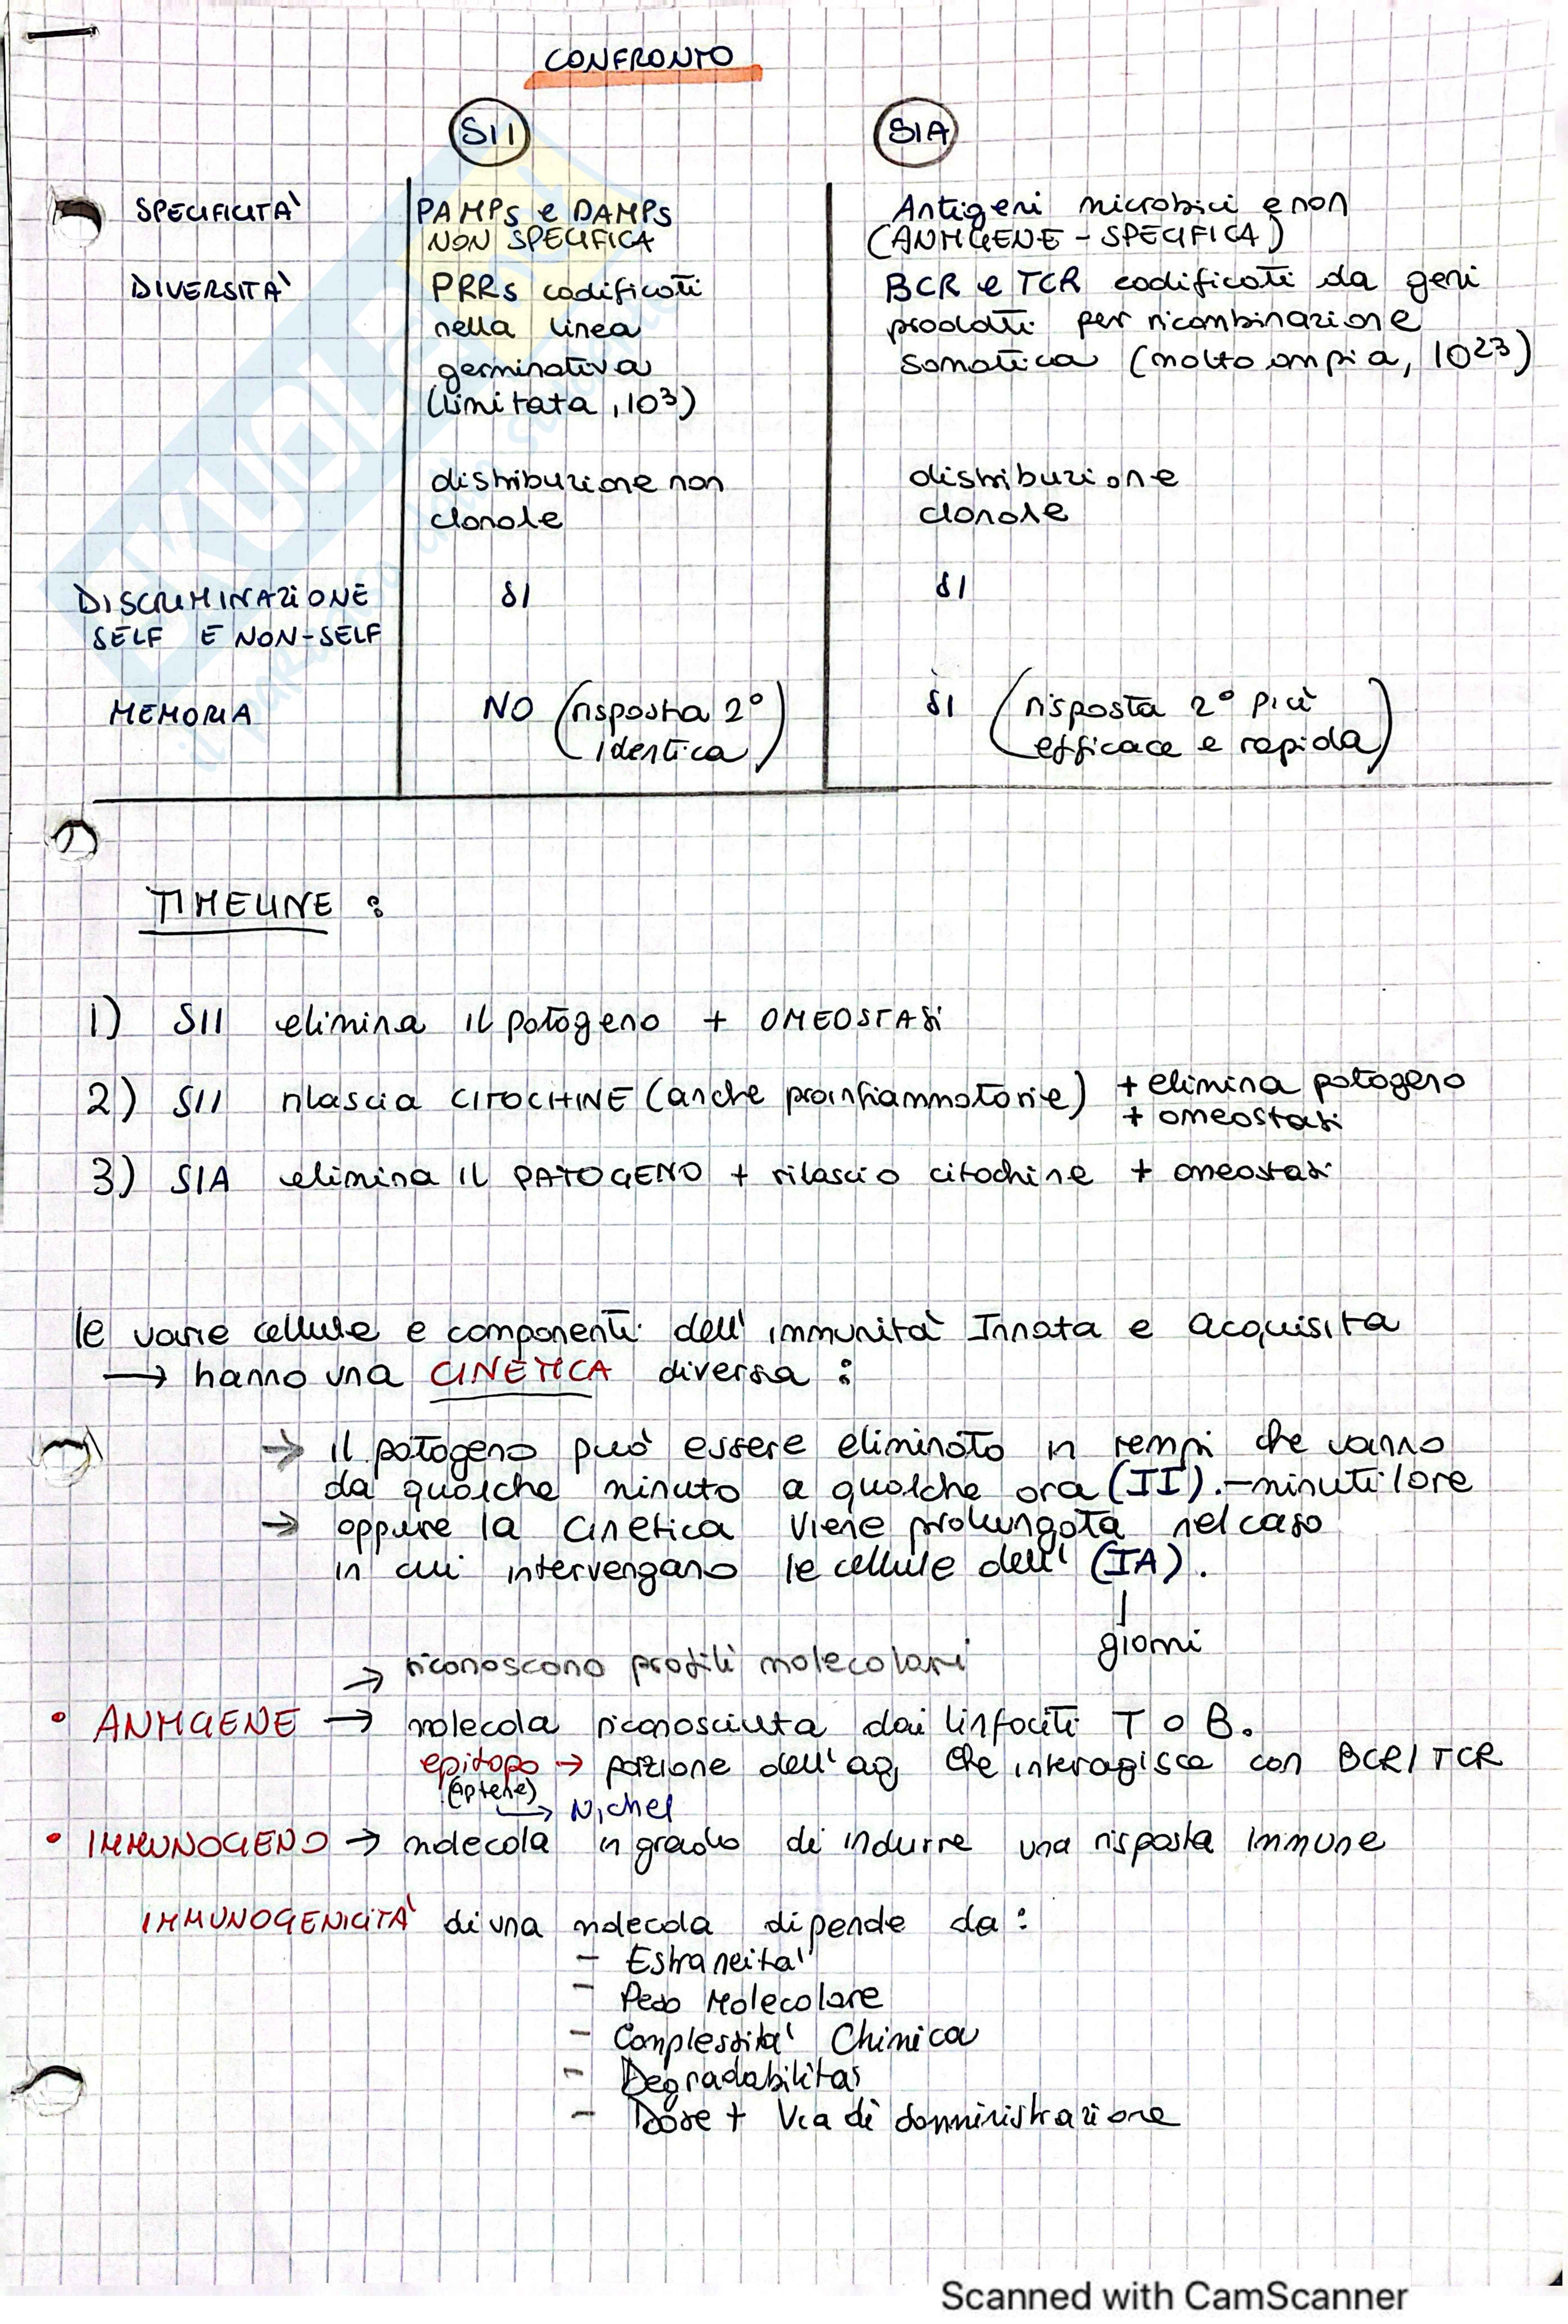 CONFRONTO
SII
SIA
SPECIFICITA'
PAMPs e DAMPs
NON SPECIFICA
Antigeni microbici e non
(ANTIGENE - SPECIFICA)
DIVERSITA'
PRRs codificati
nella linea
germinativa
(limitata, 10³)
BCR e TCR codificati da geni
prodotti per ricombinazione
somatica (molto ampia, 10²³)
distribuzione non
clonale
distribuzione
clonale
DISCRIMINAZIONE
SELF E NON-SELF
SI
SI
MEMORIA
NO (risposta 2°
identica)
SI (risposta 2° più
efficace e rapida)
TIMELINE :
1) SII elimina il patogeno + OMEOSTASI
2) SII rilascia CITOCHINE (anche proinfiammatorie) + elimina patogeno
+ omeostasi
3) SIA elimina IL PATOGENO + rilascio citochine + omeostasi
le varie cellule e componenti dell' immunità Innata e acquisita
→ hanno una CINETICA diversa :
→ il patogeno può essere eliminato in tempi che vanno
da qualche minuto a qualche ora (II). - minuti/ore
→ oppure la cinetica viene prolungata nel caso
in cui intervengano le cellule dell' (IA).
giorni
→ riconoscono profili molecolari
• ANTIGENE → molecola riconosciuta dai linfociti T o B.
epitopo → porzione dell' ag, che interagisce con BCR/TCR
(aptene)
→ Nichel
• IMMUNOGENO → molecola in grado di indurre una risposta immune
IMMUNOGENICITA' di una molecola dipende da :
- Estraneita'
- Peso Molecolare
- Complessita' Chimica
- Degradabilita'
- Dose + Via di somministrazione
Scanned with CamScanner